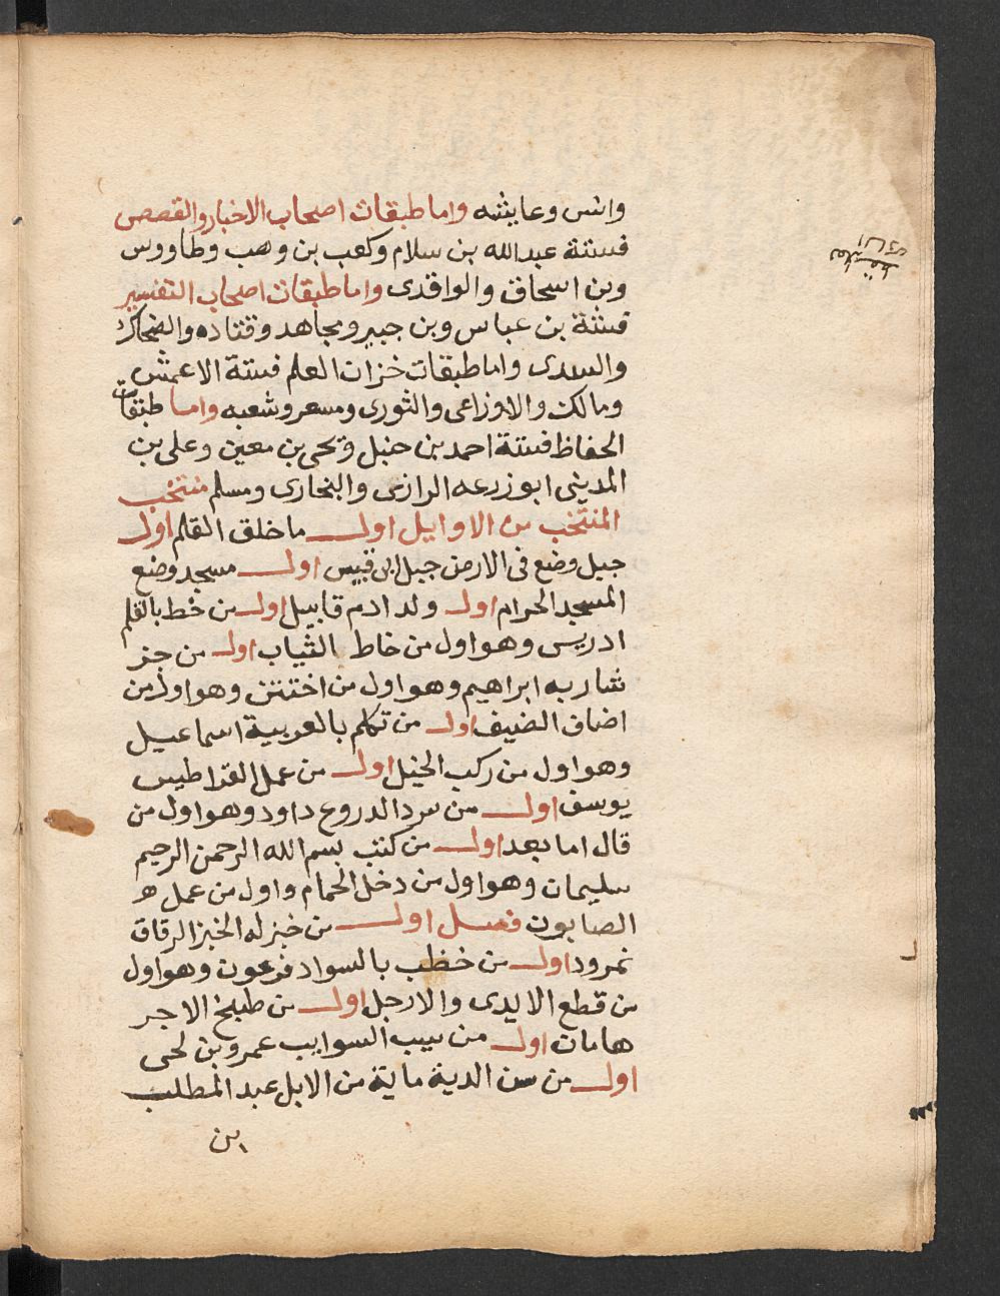 وانس وعايشه واما طبقات اصحاب الاخبار والقصص
فستة عبد الله بن سلام وكعب بن وهب وطاووس
وبن اسحاق والواقدى واما طبقات اصحاب التفسير
فستة بن عباس وبن جبير ومجاهد وقتاده والضحاك
والسدى واما طبقات خزان العلم فستة الاعمش
ومالك والاوزاعى والثورى ومسعر وشعبه واما طبقات
الحفاظ فستة احمد بن حنبل ويحى بن معين وعلى بن
المدينى ابو زرعه الرازى والبخارى ومسلم منتخب
المنتخب من الاوايل اول ما خلق القلم اول
جبل وضع فى الارض جبل ابى قبيس اول مسجد وضع
المسجد الحرام اول ولد ادم قابيل اول من خط بالقلم
ادريس وهو اول من خاط الثياب اول من جز
شاربه ابراهيم وهو اول من اختتن وهو اول من
اضاف الضيف اول من تكلم بالعربية اسماعيل
وهو اول من ركب الخيل اول من عمل القراطيس
يوسف اول من سرد الدروع داود وهو اول من
قال اما بعد اول من كتب بسم الله الرحمن الرحيم
سليمان وهو اول من دخل الحمام واول من عمل ه
الصابون فصل اول من خبز له الخبز الرقاق
نمرود اول من خظب بالسواد فرعون وهو اول
من قطع الايدى والارجل اول من طبخ الاجر
هامان اول من سيب السوايب عمرو بن لحى
اول من سن الدية ماية من الابل عبد المطلب
ابن